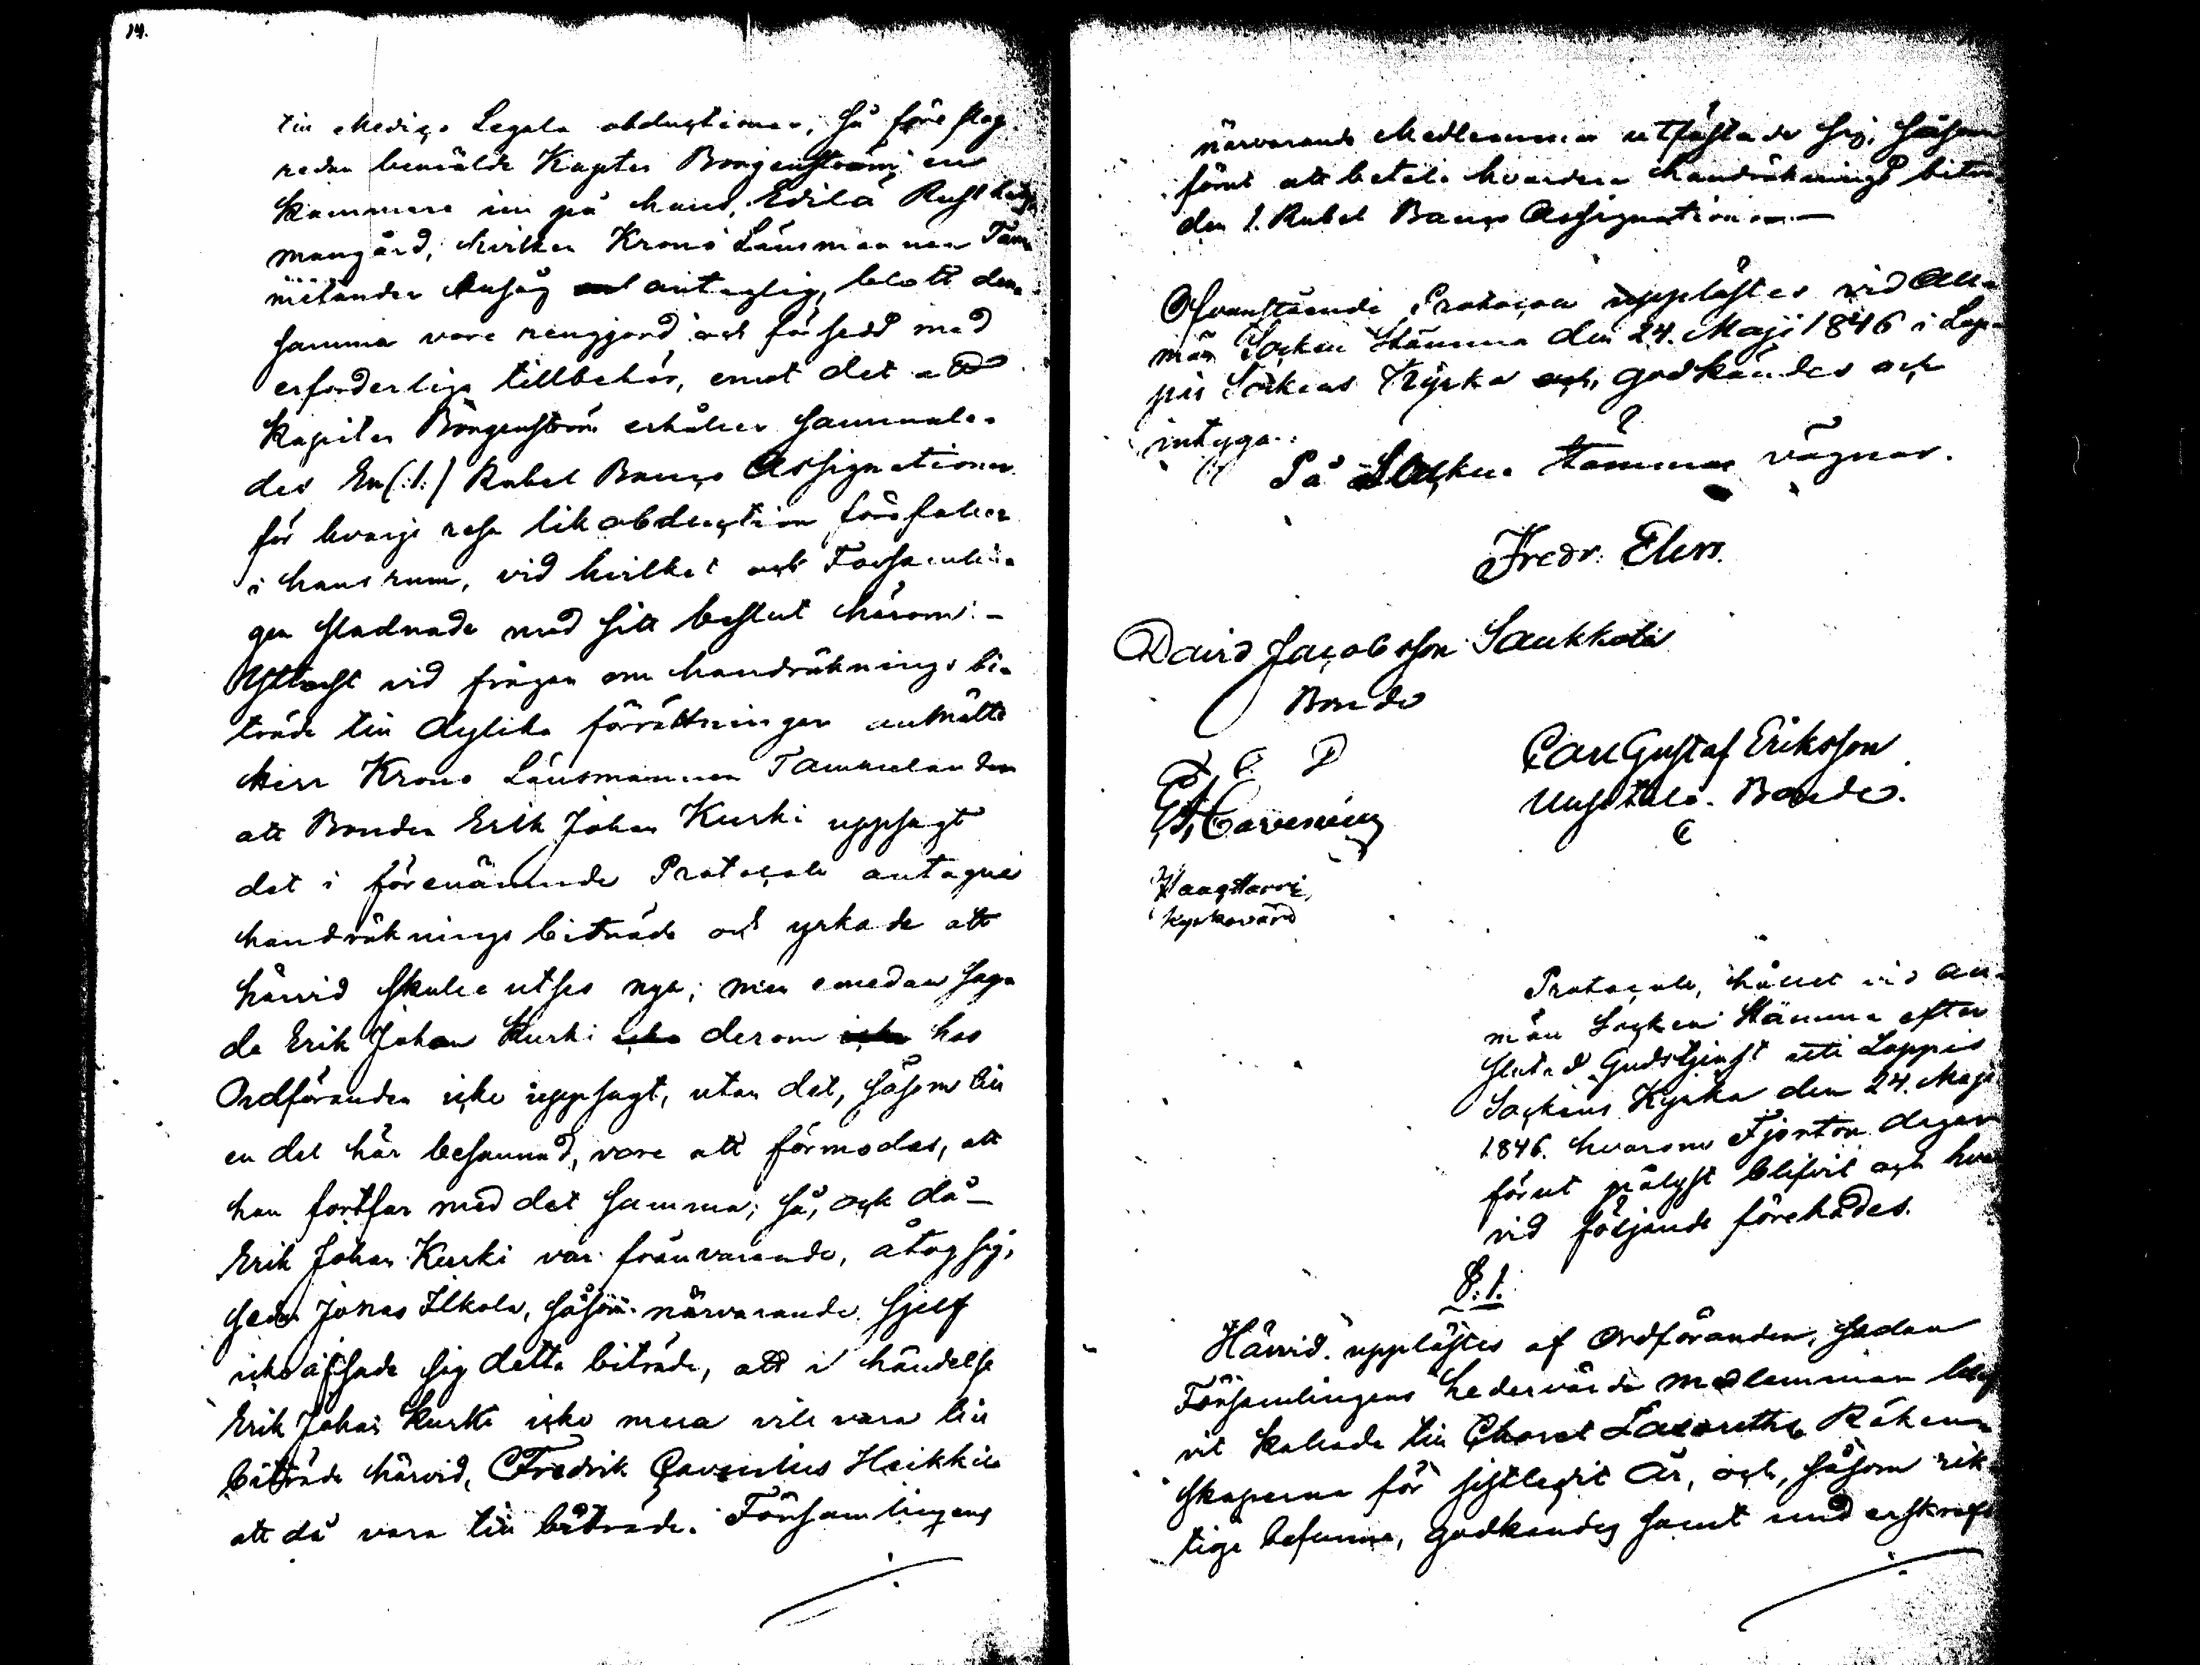 14.
till Medico Legala obductioner, så föreslog
redan bemälde Kapten Borgenström en
kammare inn på hans, Edilä Rusthålls
mangård, hvilken Krono Länsmannen Tam¬
melander ansåg antaglig, blott den¬
samma vore rengjord och försedd med
erforderliga tillbehör, emot det att
Kapiten Borgenström erhåller sammale¬
des En (:1:) Rubel Banco Assignationer
för hvarje resa likobduction förefaller
i hans rum, vid hvilket och Församlin¬
gen stadnade med sitt beslut härom. -
Ytterst vid frågan om handräknings bi¬
träde till dylika förrättningar anmälte
Herr Krono Länsmannen Tammelander
att Bonden Erik Johan Kurki uppsagt
det i förenämnde Protocoll antagne
handräknings biträde och yrkade att
härvid skulle utses nya; men emedan sag¬
de Erik Johan Kurki derom hos
Ordföranden icke uppsagt, utan det, såsom till
en del här besannad, vore att förmodas, att
han fortfar med det samma; så, och då
Erik Johan Kurki var frånvarande, åtog sig,
sedan Jonas Ilkola, såsom närvarande sjelf
icke afsade sig detta biträde, att i händelse
Erik Johan Kurki icke mera vill vara till
biträde härvid, Fredrik Cavenius Heikkilä
att då vara till biträde. Församlingens
närvarande Medlemmar utfästade sig, såsom
förut att betala hvardera handräknings biträ¬
den 1. Rubel Banco Assignationer.
Ofvanstående Protocoll upplästes vid All¬
män Socken Stämma den 24. Maji 1846 i Lap¬
pis Sockens Kyrka godkändes och
intygas.
På Socken Stämmans vägnar.
Fredr. Elers.
David Jacobsson Saukkola
Bonde
Carl Gustaf Eriksson
Bonde.
Cavenius
Kyrkovärd
Protocoll, hållet vid All¬
män Socken Stämma efter
slutad Gudstjenst uti Lappis
Sockens Kyrka den 24. Maji
1846. hvarom Fjorton dagar
förut pålyst blifvit och hvar
vid följande förehades.
§. 1.
Härvid upplästes af Ordföranden, sedan
Församlingens hedervärde medlemmar blif¬
vit kallade till Choret Lazaretts Räken¬
skaperna för sistledit År, och, såsom rik¬
tige befunne, godkändes samt med erskraft